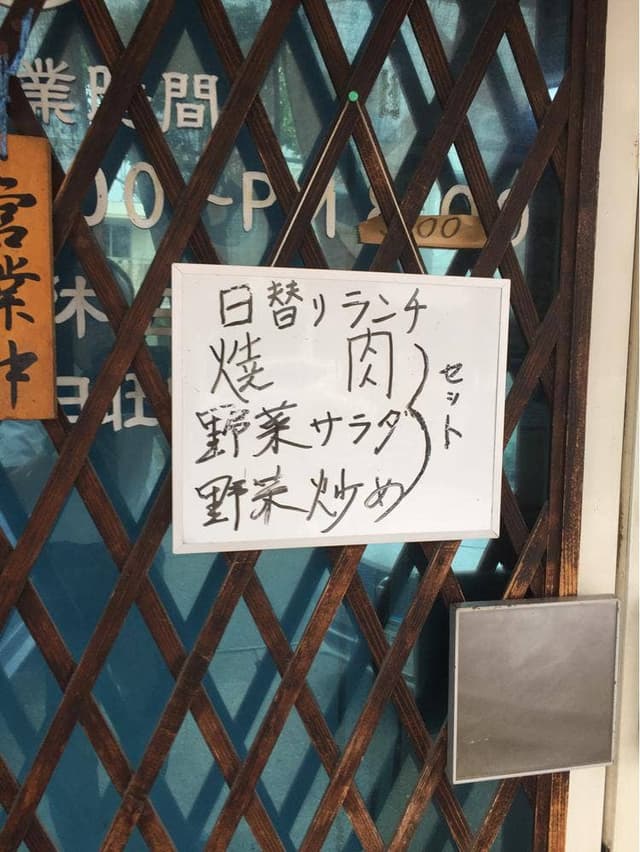 業時間
00~PM
00
休
営業中
日替りランチ
焼肉
野菜サラダ
野菜炒め
セット